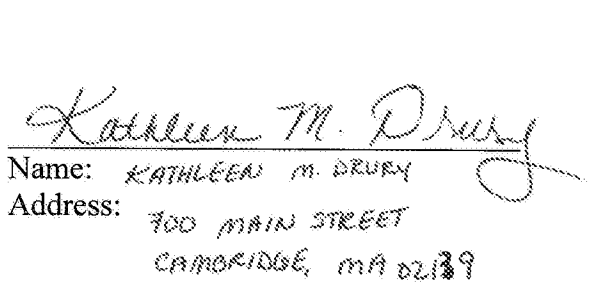 Kathleen M. Drury
Name: KATHLEEN M. DRURY
Address:
700 MAIN STREET
CAMBRIDGE, MA 02139